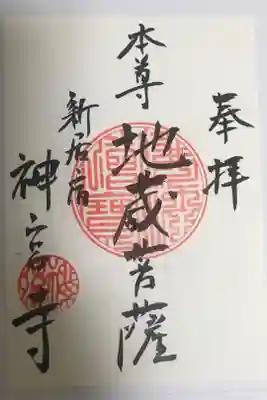 奉拝
本尊
地蔵菩薩
新居宿
神宮寺